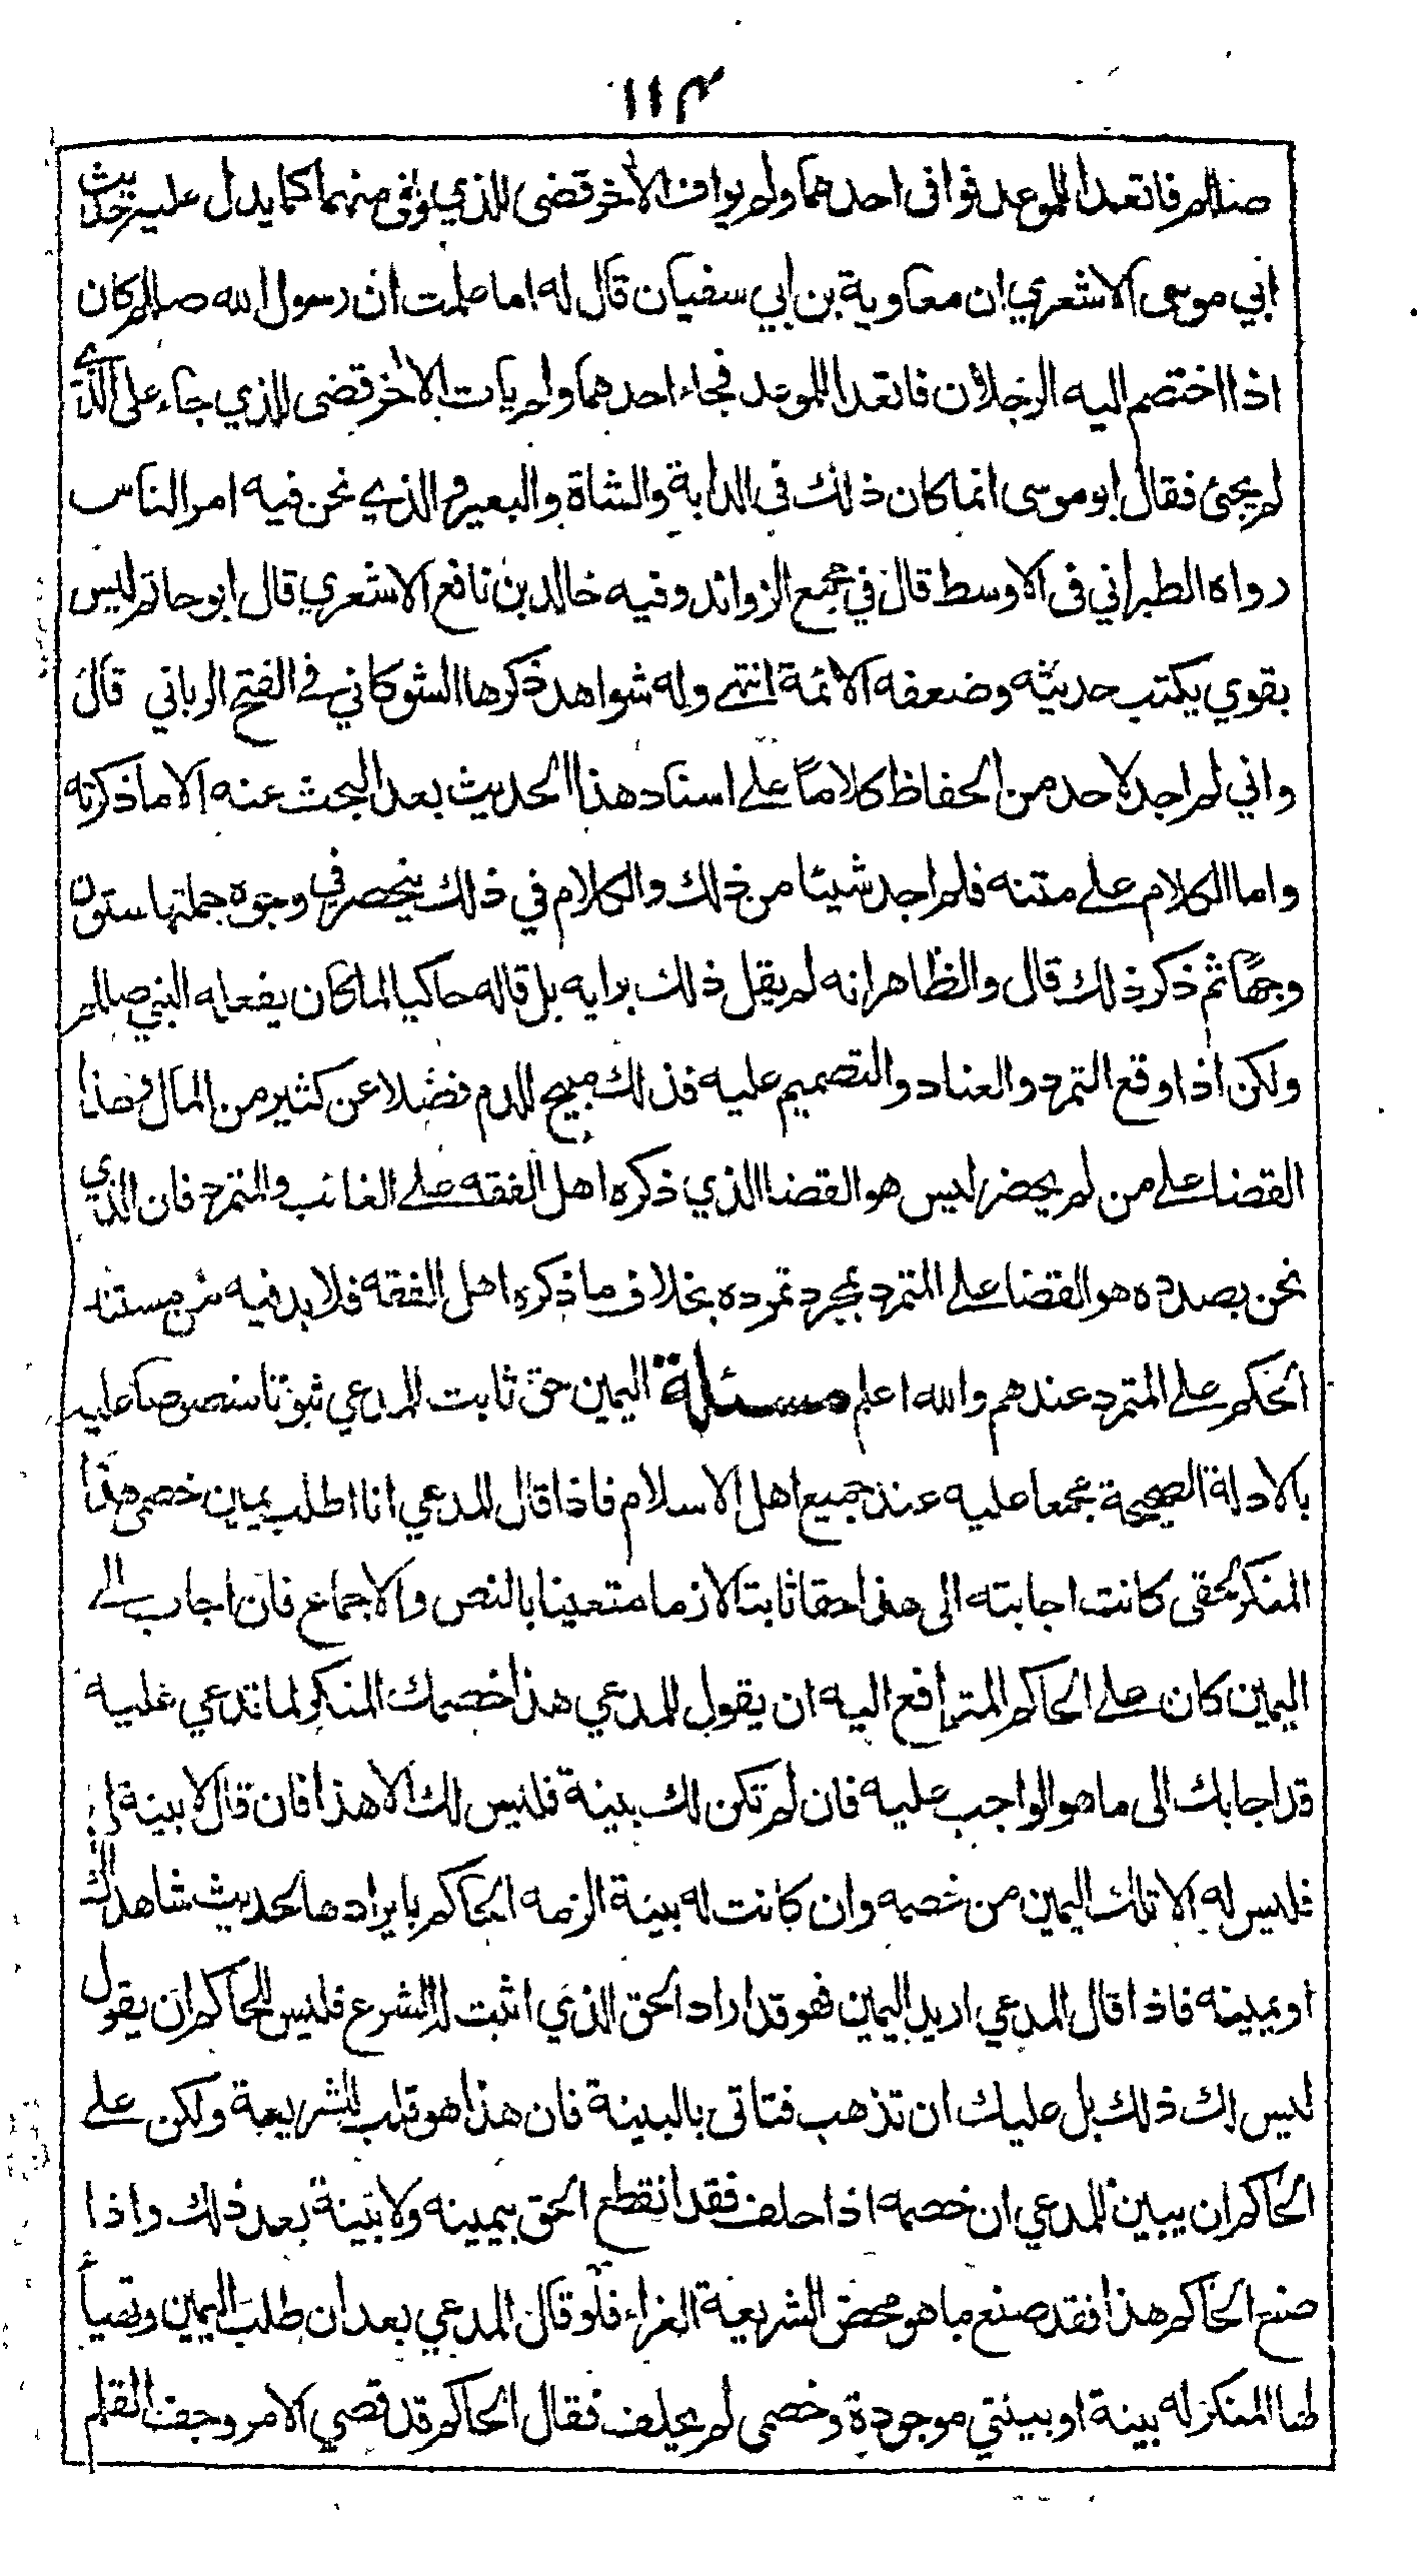 ١١٣
صللم فاتعدا للموعد فوافى احدهما ولم يواف الآخر قضى للذي يوافى منهما كما يدل عليه حديث
ابي موسى الاشعري ان معاوية بن ابي سفيان قال له اما علمت ان رسول الله صللم كان
اذا اختصم اليه الرجلان فاتعدا للموعد فجاء احدهما ولم يات الآخر قضى للذي جاء على الذي
لم يجئ فقال ابو موسى انما كان ذلك في الدابة والشاة والبعير والذي نحن فيه امر الناس
رواه الطبراني فى الاوسط قال في مجمع الزوائد وفيه خالد بن نافع الاشعري قال ابو حاتم ليس
بقوي يكتب حديثه وضعفه الائمة انتهى وله شواهد ذكرها الشوكاني في الفتح الرباني قال
واني لم اجد لاحد من الحفاظ كلاماً على اسناد هذا الحديث بعد البحث عنه الا ما ذكرته
واما الكلام على متنه فلم اجد شيئا من ذلك والكلام في ذلك ينحصر في وجوه جملتها ستون
وجهاً ثم ذكر ذلك قال والظاهر انه لم يقل ذلك برايه بل قاله حاكيا لما كان يفعله النبي صللم
ولكن اذا وقع التمرد والعناد والتصميم عليه فذلك مبيح للدم فضلا عن كثير من المال وهذا
القضا على من لم يحضر ليس هو القضا الذي ذكره اهل الفقه على الغائب والمتمرد فان الذي
نحن بصدده هو القضا على المتمرد بمجرد تمرده بخلاف ما ذكره اهل الفقه فلا بد فيه من مستند
الحكم على المتمرد عندهم والله اعلم مسئلة اليمين حق ثابت للمدعي ثبوتا منصوصا عليه
بالادلة الصحيحة مجمعا عليه عند جميع اهل الاسلام فاذا قال المدعي انا اطلب يمين خصمي هذا
المنكر بحقى كانت اجابته الى هذا حقا ثابتا لازما متعينا بالنص والاجماع فان اجاب الى
اليمين كان على الحاكم المترافع اليه ان يقول للمدعي هذا خصمك المنكر لما تدعي عليه
قد اجابك الى ما هو الواجب عليه فان لم تكن لك بينة فليس لك الا هذا فان قال لا بينة لي
فليس له الا تلك اليمين من خصمه وان كانت له بينة الزمه الحاكم بايرادها لحديث شاهداك
او يمينه فاذا قال المدعي اريد اليمين فهو قد اراد الحق الذي اثبت له الشرع فليس للحاكم ان يقول
ليس لك ذلك بل عليك ان تذهب فتاتى بالبينة فان هذا هو قلب للشريعة ولكن على
الحاكم ان يبين للمدعي ان خصمه اذا حلف فقد انقطع الحق بيمينه ولا بينة بعد ذلك واذا
صنع الحاكم هذا فقد صنع ما هو محض الشريعة الغراء فلو قال المدعي بعد ان طلب اليمين وتهيأ
لها المنكر له بينة او بينتي موجودة وخصمي لم يحلف فقال الحاكم قد قضي الامر وجف القلم